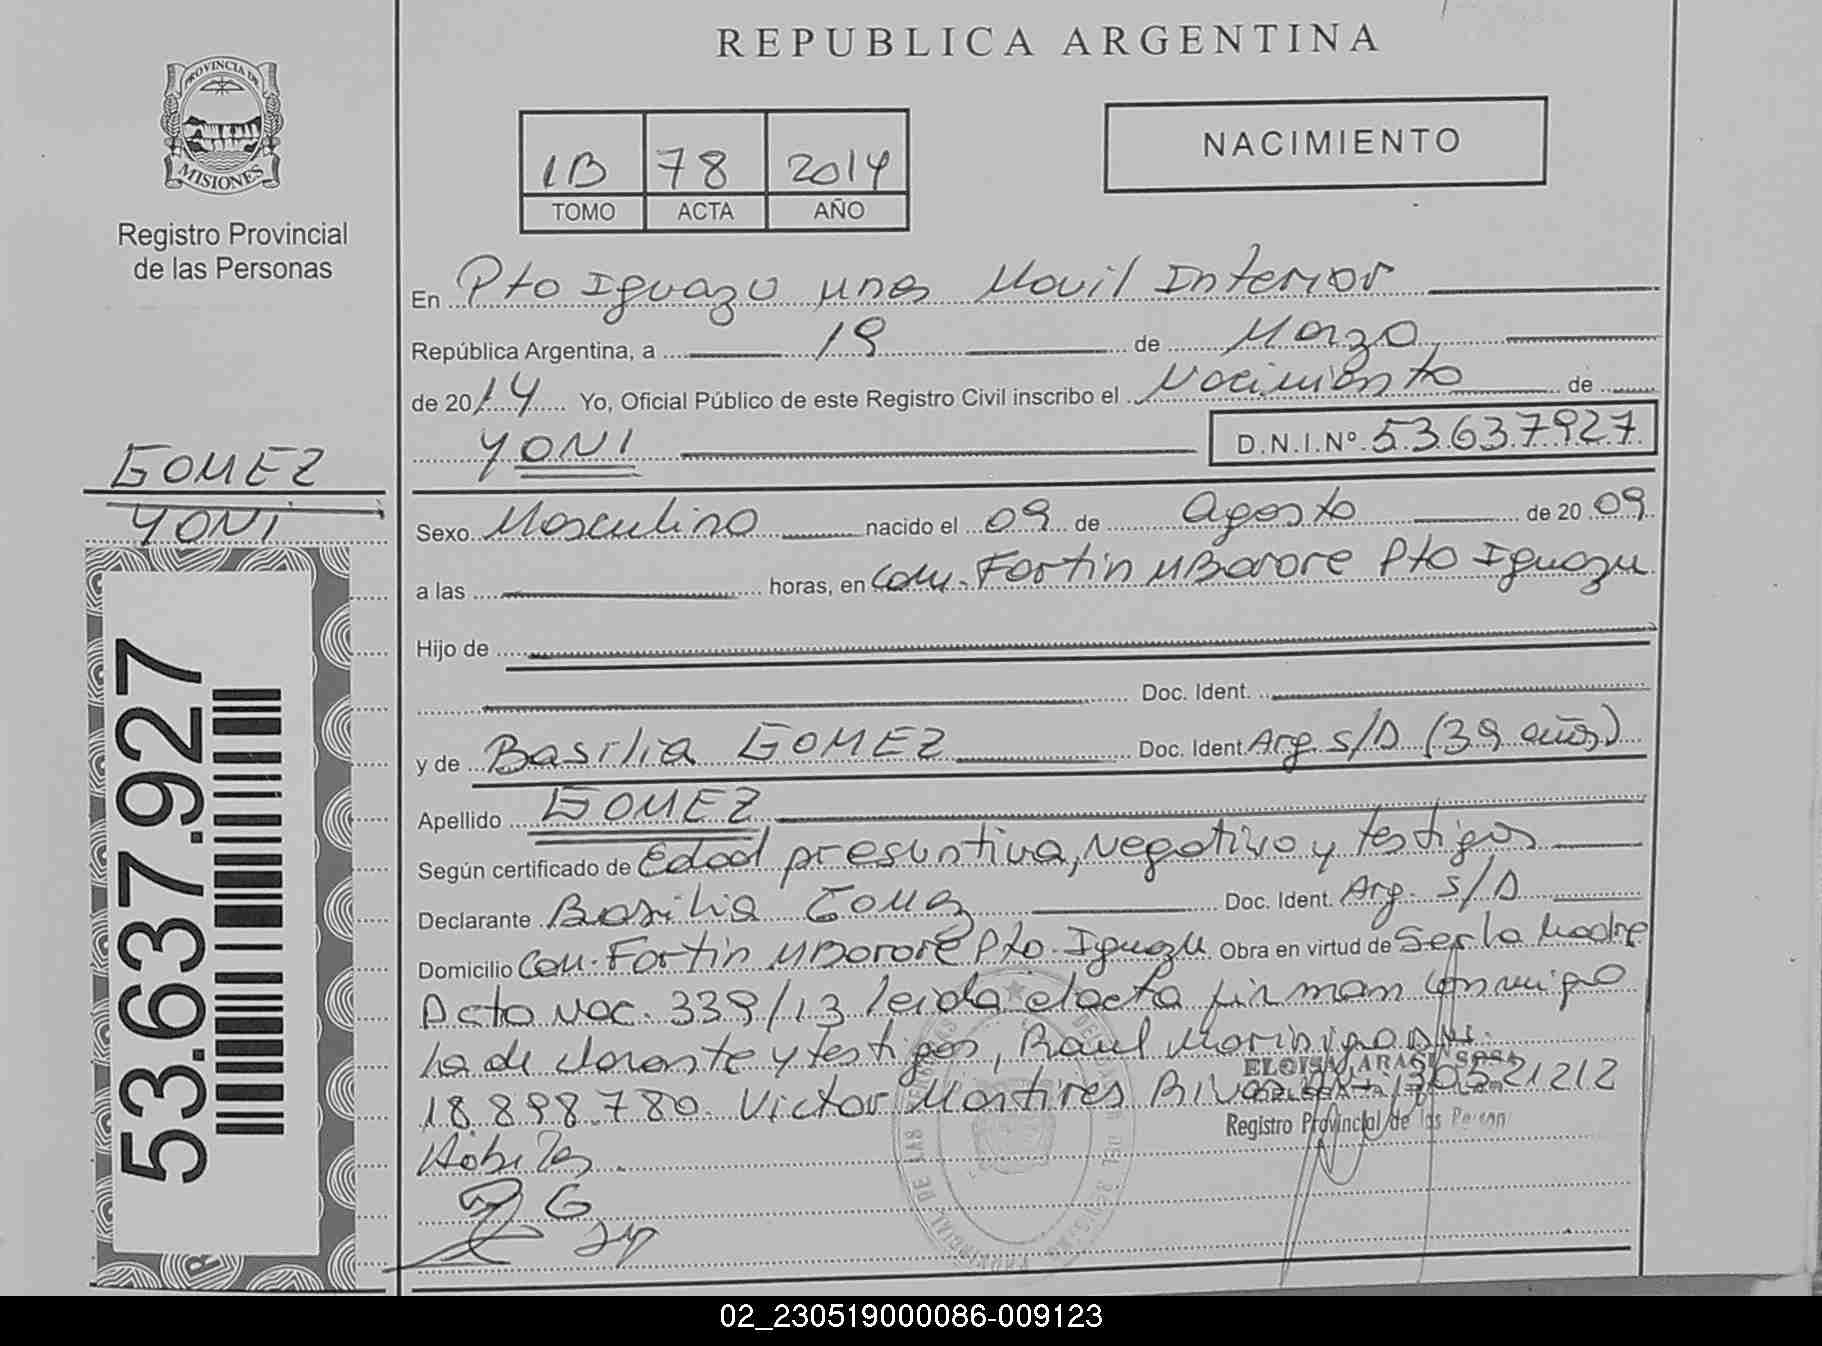 REPUBLICA ARGENTINA
PROVINCIA DE
MISIONES
Registro Provincial
de las Personas
1B 78 2014
TOMO ACTA AÑO
NACIMIENTO
En Pto Iguazu unes Movil Interior
República Argentina, a 19 de Marzo
de 2014 Yo, Oficial Público de este Registro Civil inscribo el Nacimiento de
YONI D.N.I.Nº 53.637.927
GOMEZ
YONI
53.637.927
Sexo Masculino nacido el 09 de Agosto de 20 09
a las horas, en Com. Fortin MBorore Pto Iguazu
Hijo de
Doc. Ident.
y de Basilia GOMEZ Doc. Ident Arg. S/D (39 años)
Apellido GOMEZ
Según certificado de Edad presuntiva, Negativo y testigos
Declarante Basilia Gomez Doc. Ident. Arg. S/D
Domicilio Com. Fortin MBorore Pto. Iguazu Obra en virtud de Ser la Madre
Acta Nac. 339/13 leida el acta firman conmigo
la declarante y testigos, Raul Morinigo DNI.
18.898.780. Victor Martires Rivas 30521212
Habiles.
ELOISA ARASI SOSA
DELEGADA TITULAR
Registro Provincial de las Person
02_230519000086-009123